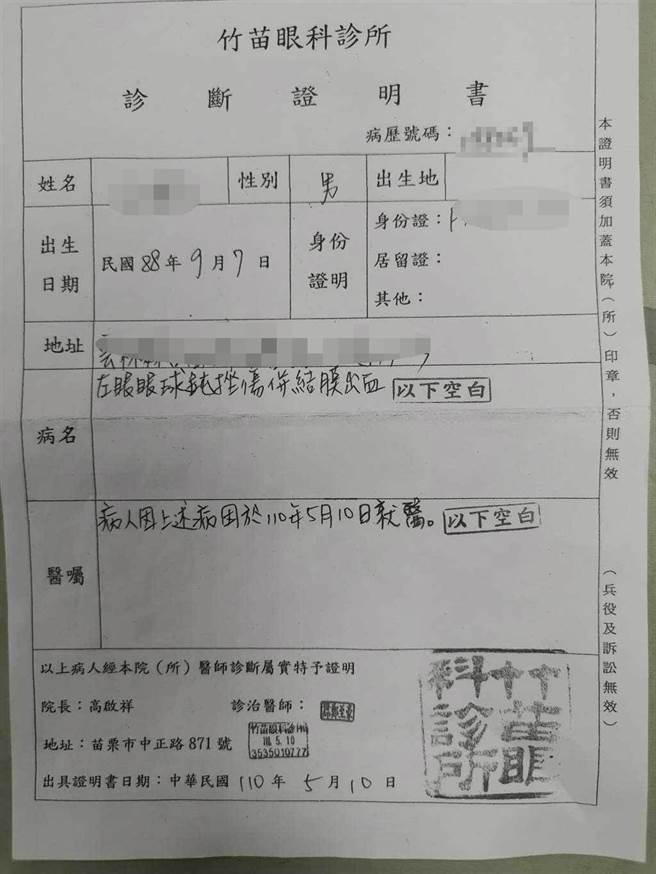 竹苗眼科診所
診斷證明書
病歷號碼：
姓名
性別 男 出生地
出生日期 民國88年9月7日
身份證明
身份證：
居留證：
其他：
地址
病名
左眼眼球鈍挫傷併結膜出血 以下空白
醫囑
病人因上述病因於110年5月10日就醫。以下空白
以上病人經本院（所）醫師診斷屬實特予證明
院長：高啟祥 診治醫師：
地址：苗栗市中正路871號
竹苗眼科診所
110.5.10
出具證明書日期：中華民國110年5月10日
竹苗眼科診所
本證明書須加蓋本院（所）印章，否則無效
（兵役及訴訟無效）